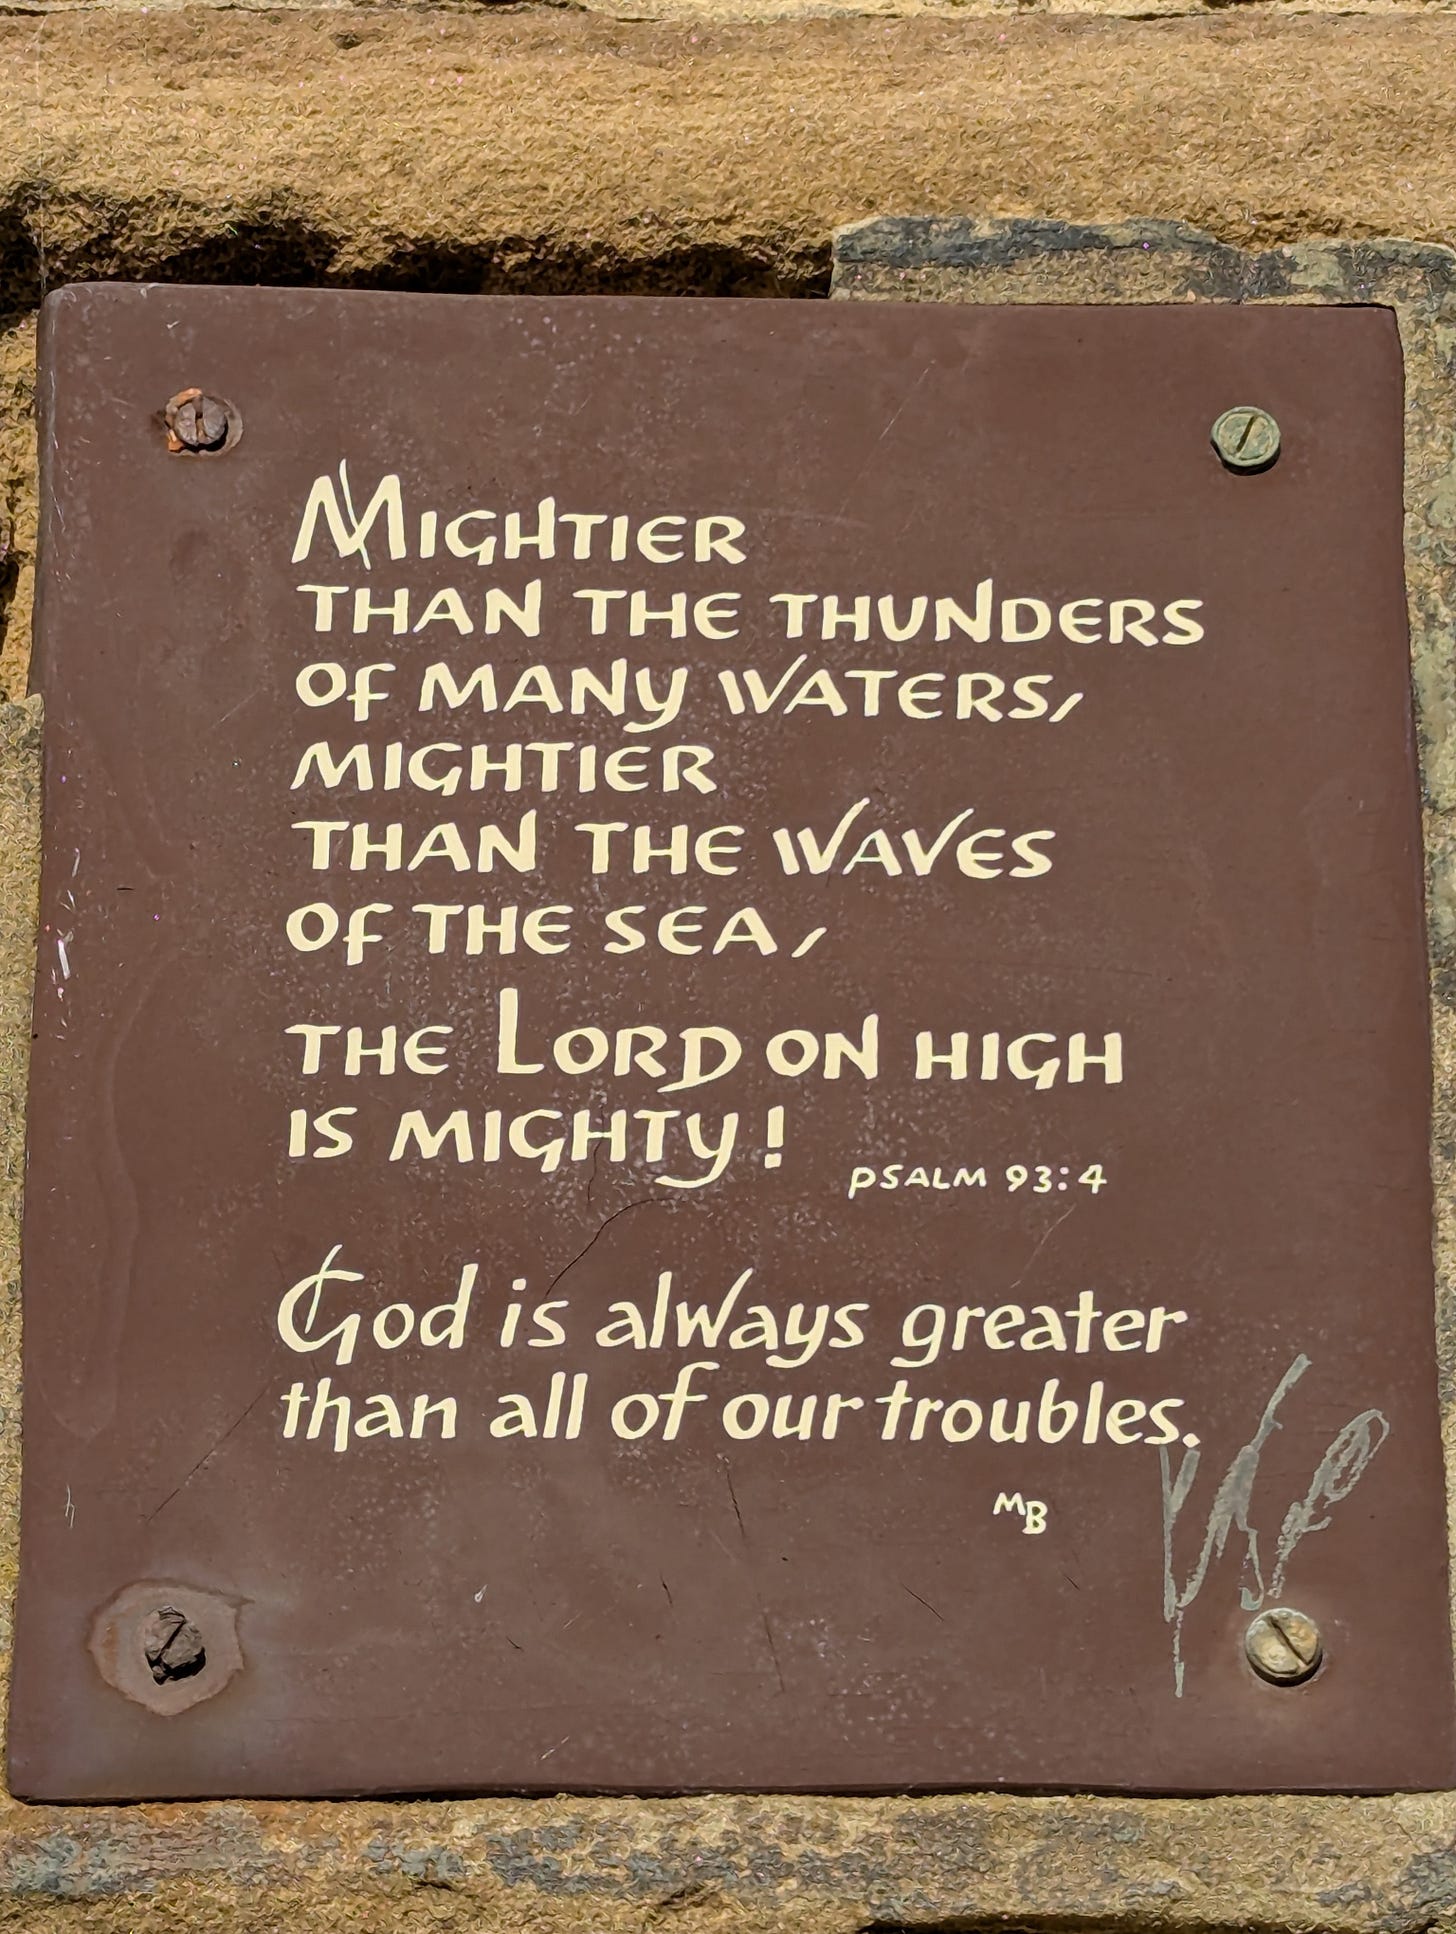 Mightier
than the thunders
of many waters,
mightier
than the waves
of the sea,
the Lord on high
is mighty!
Psalm 93:4
God is always greater
than all of our troubles.
MB